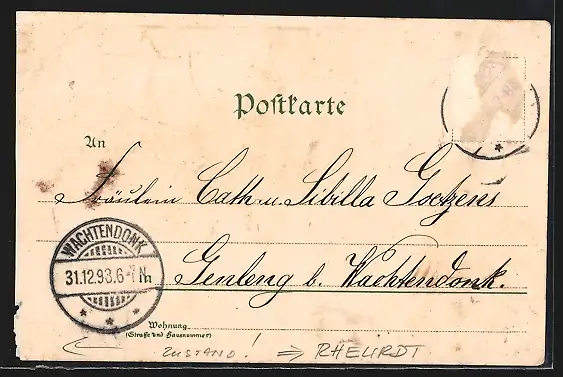 Postkarte
An
Fräulein Cath. u. Sibilla Goetzens
WACHTENDONK
31.12.93.6-7N.
Genleng b. Wachtendonk.
Wohnung
(Straße und Hausnummer)
ZUSTAND! ⇒ RHEURDT